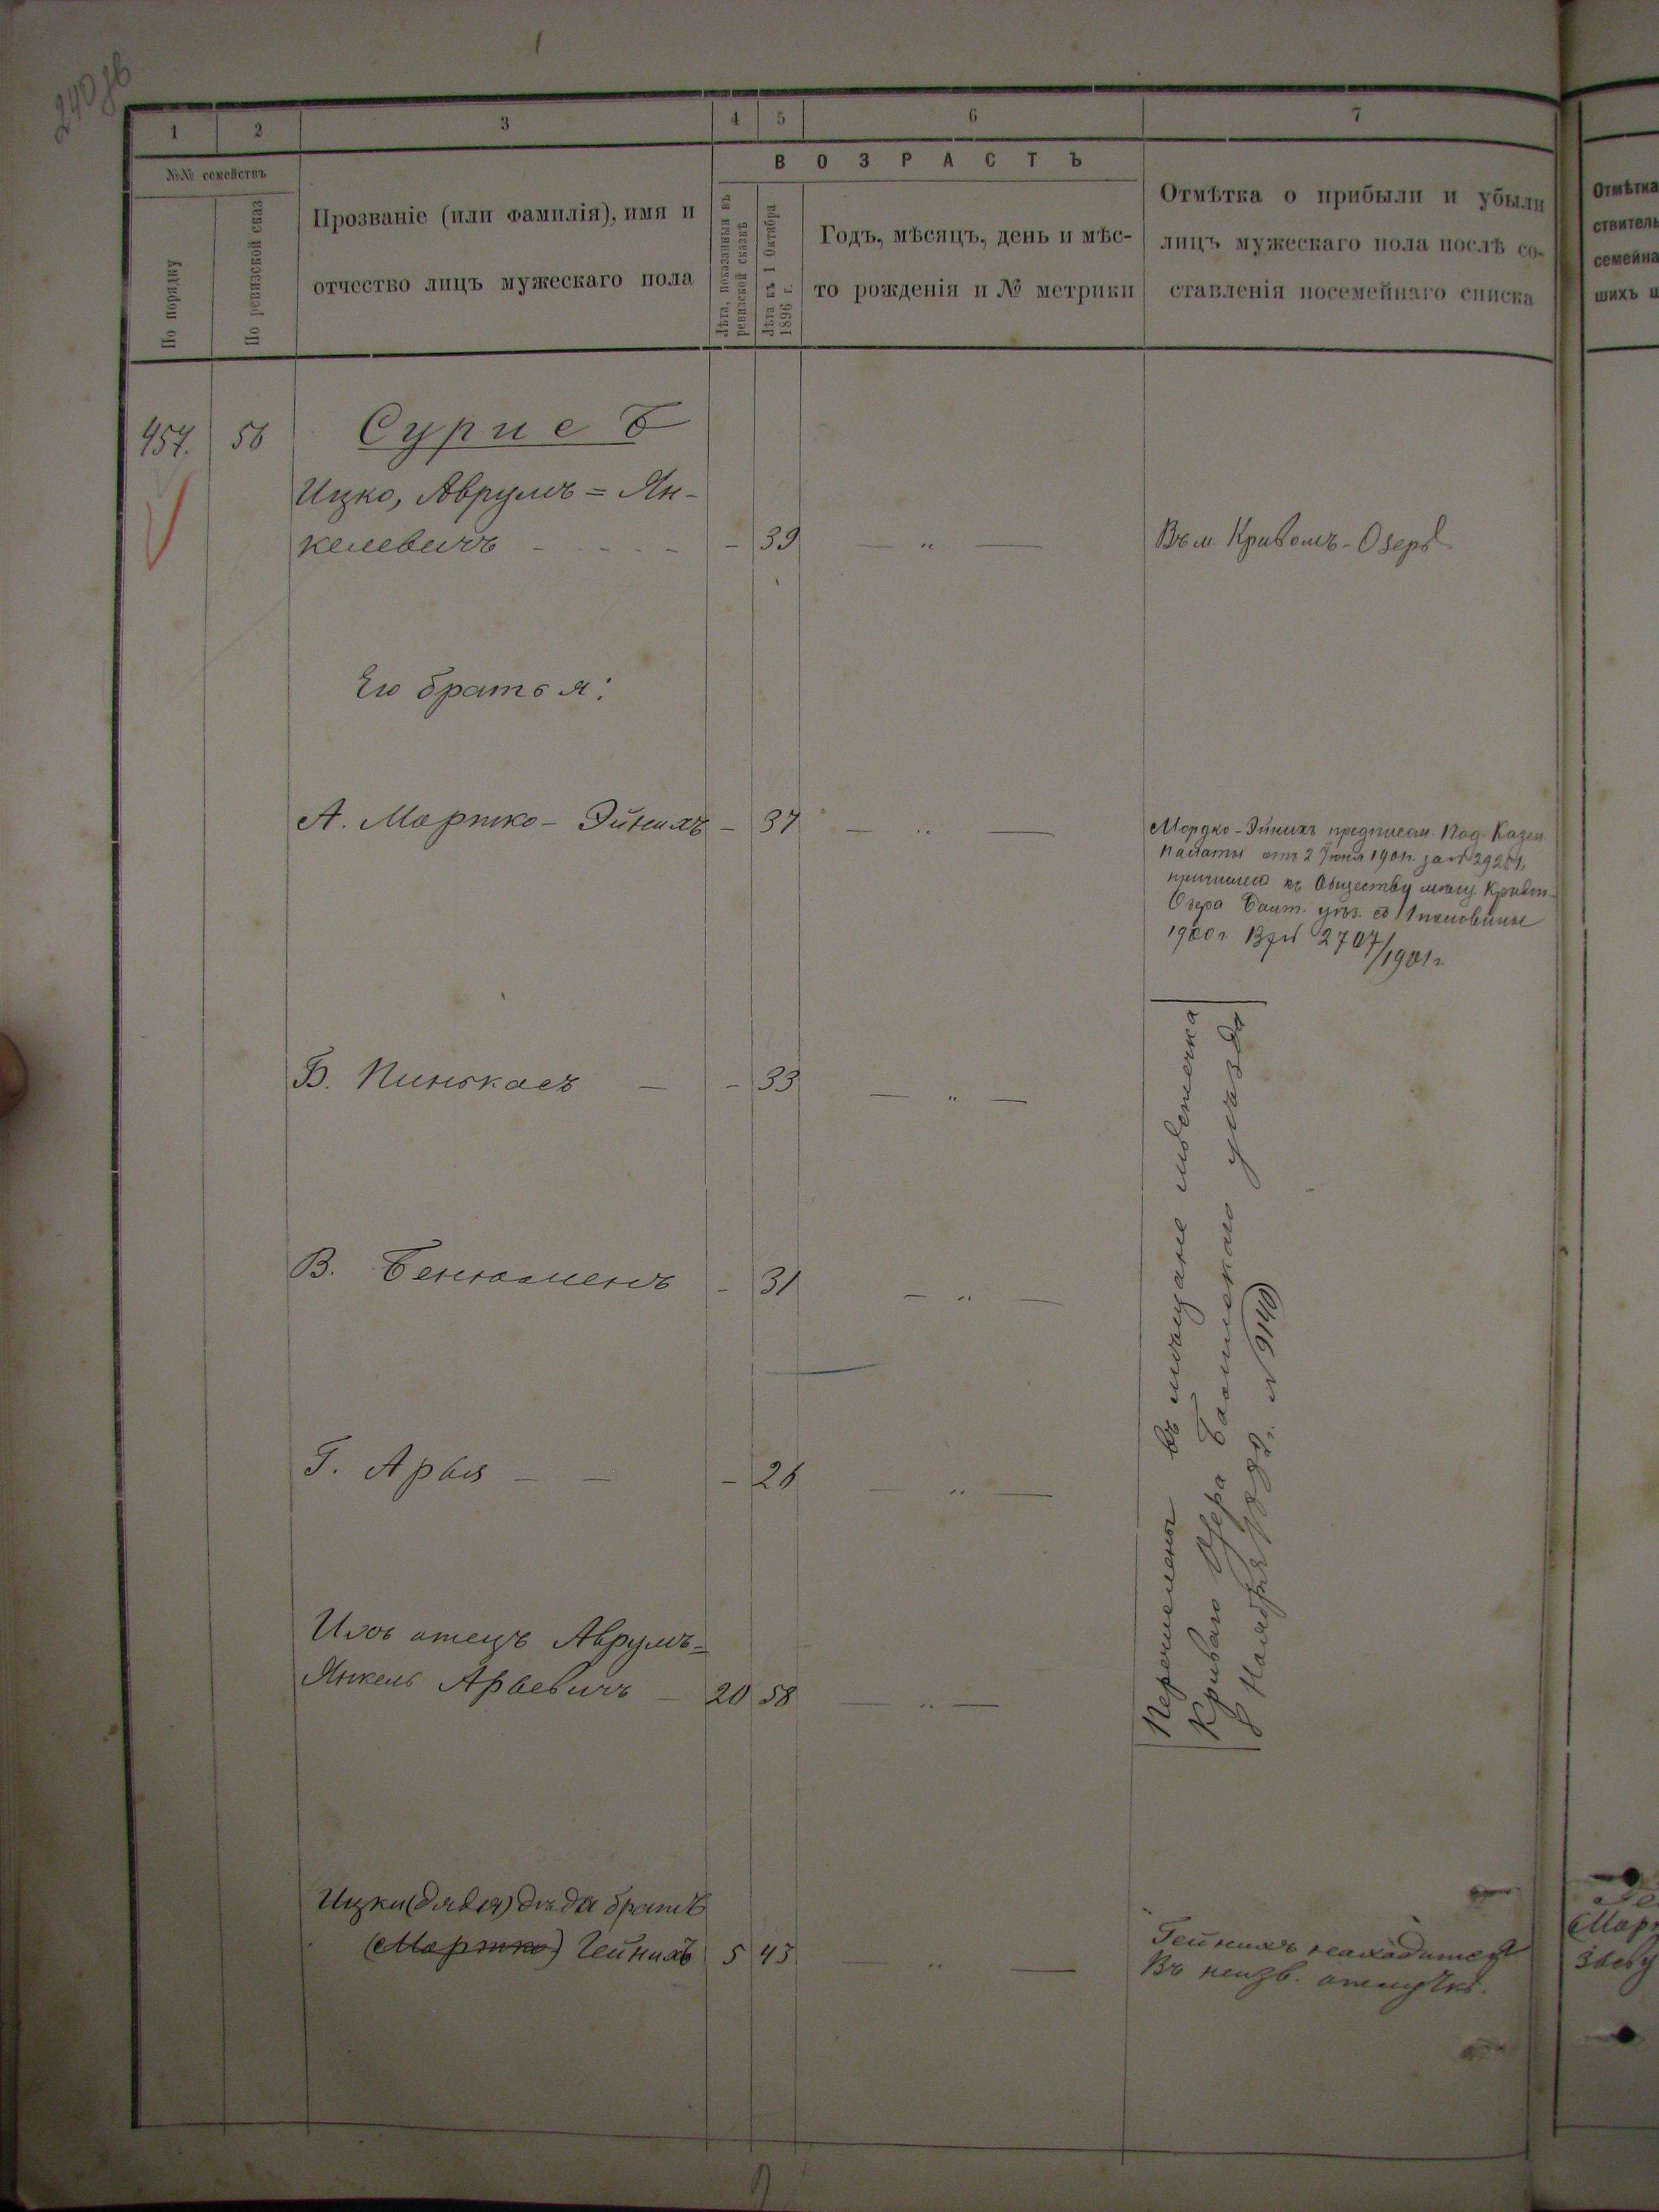 240 об
1 2 3 4 5 6 7
№№ семействъ
По порядку
По ревизской сказ
Прозваніе (или фамилія), имя и
отчество лицъ мужескаго пола
ВОЗРАСТЪ
Лѣта, показанныя въ
ревизской сказкѣ
Лѣта къ 1 Октября
1896 г.
Годъ, мѣсяцъ, день и мѣс-
то рожденія и № метрики
Отмѣтка о прибыли и убыли
лицъ мужескаго пола послѣ со-
ставленія посемейнаго списка
Отмѣтка
ствитель
семейна
шихъ
457. 56 Сурис
Ицко, Аврумъ = Ян-
келевичъ - - - - - 39 — " — Въ м. Кривомъ-Озерѣ
Его братья:
А. Мортко - Эйнихъ - 37 — " —
Мордко-Эйнихъ предписан. Под. Казен.
палаты отъ 2 Іюня 1901 г. за №
къ Обществу Кривого
Озера Балт. уѣз. съ 1 половины
1900 г. 2707/1901 г.
Б. Пинькасъ — - 33 — " —
В. Беньюменъ - 31 — " —
Г. Арья — — - 26 — " —
Перечислены въ мѣщане мѣстечка
Криваго Озера Балтскаго уѣзда
8 Ноября г. № 9140
Ихъ отецъ Аврумъ =
Янкель Арьевичъ — 20 58 — " —
Ицки (дядя) дѣда братъ
(Мортко) Гейнихъ 5 43 — " —
Гейнихъ находится
въ неизв. отлучкѣ.